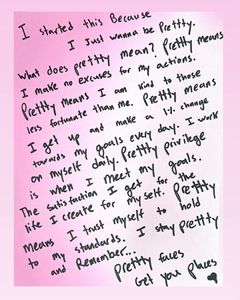 I started this Because
I Just wanna be Prettty.
what does prettty mean? Prettty means
I make no excuses for my actions.
Prettty Means I am kind to those
less fortunate than me. Prettty means
I get up and make a 1% change
towards my goals every day. I work
on myself daily. Prettty privilege
is when I meet my goals.
The satisfaction I get for the
life I create for myself. Prettty
means I trust myself to hold
to my standards. I stay prettty
and Remember...
Prettty faces
Get you places